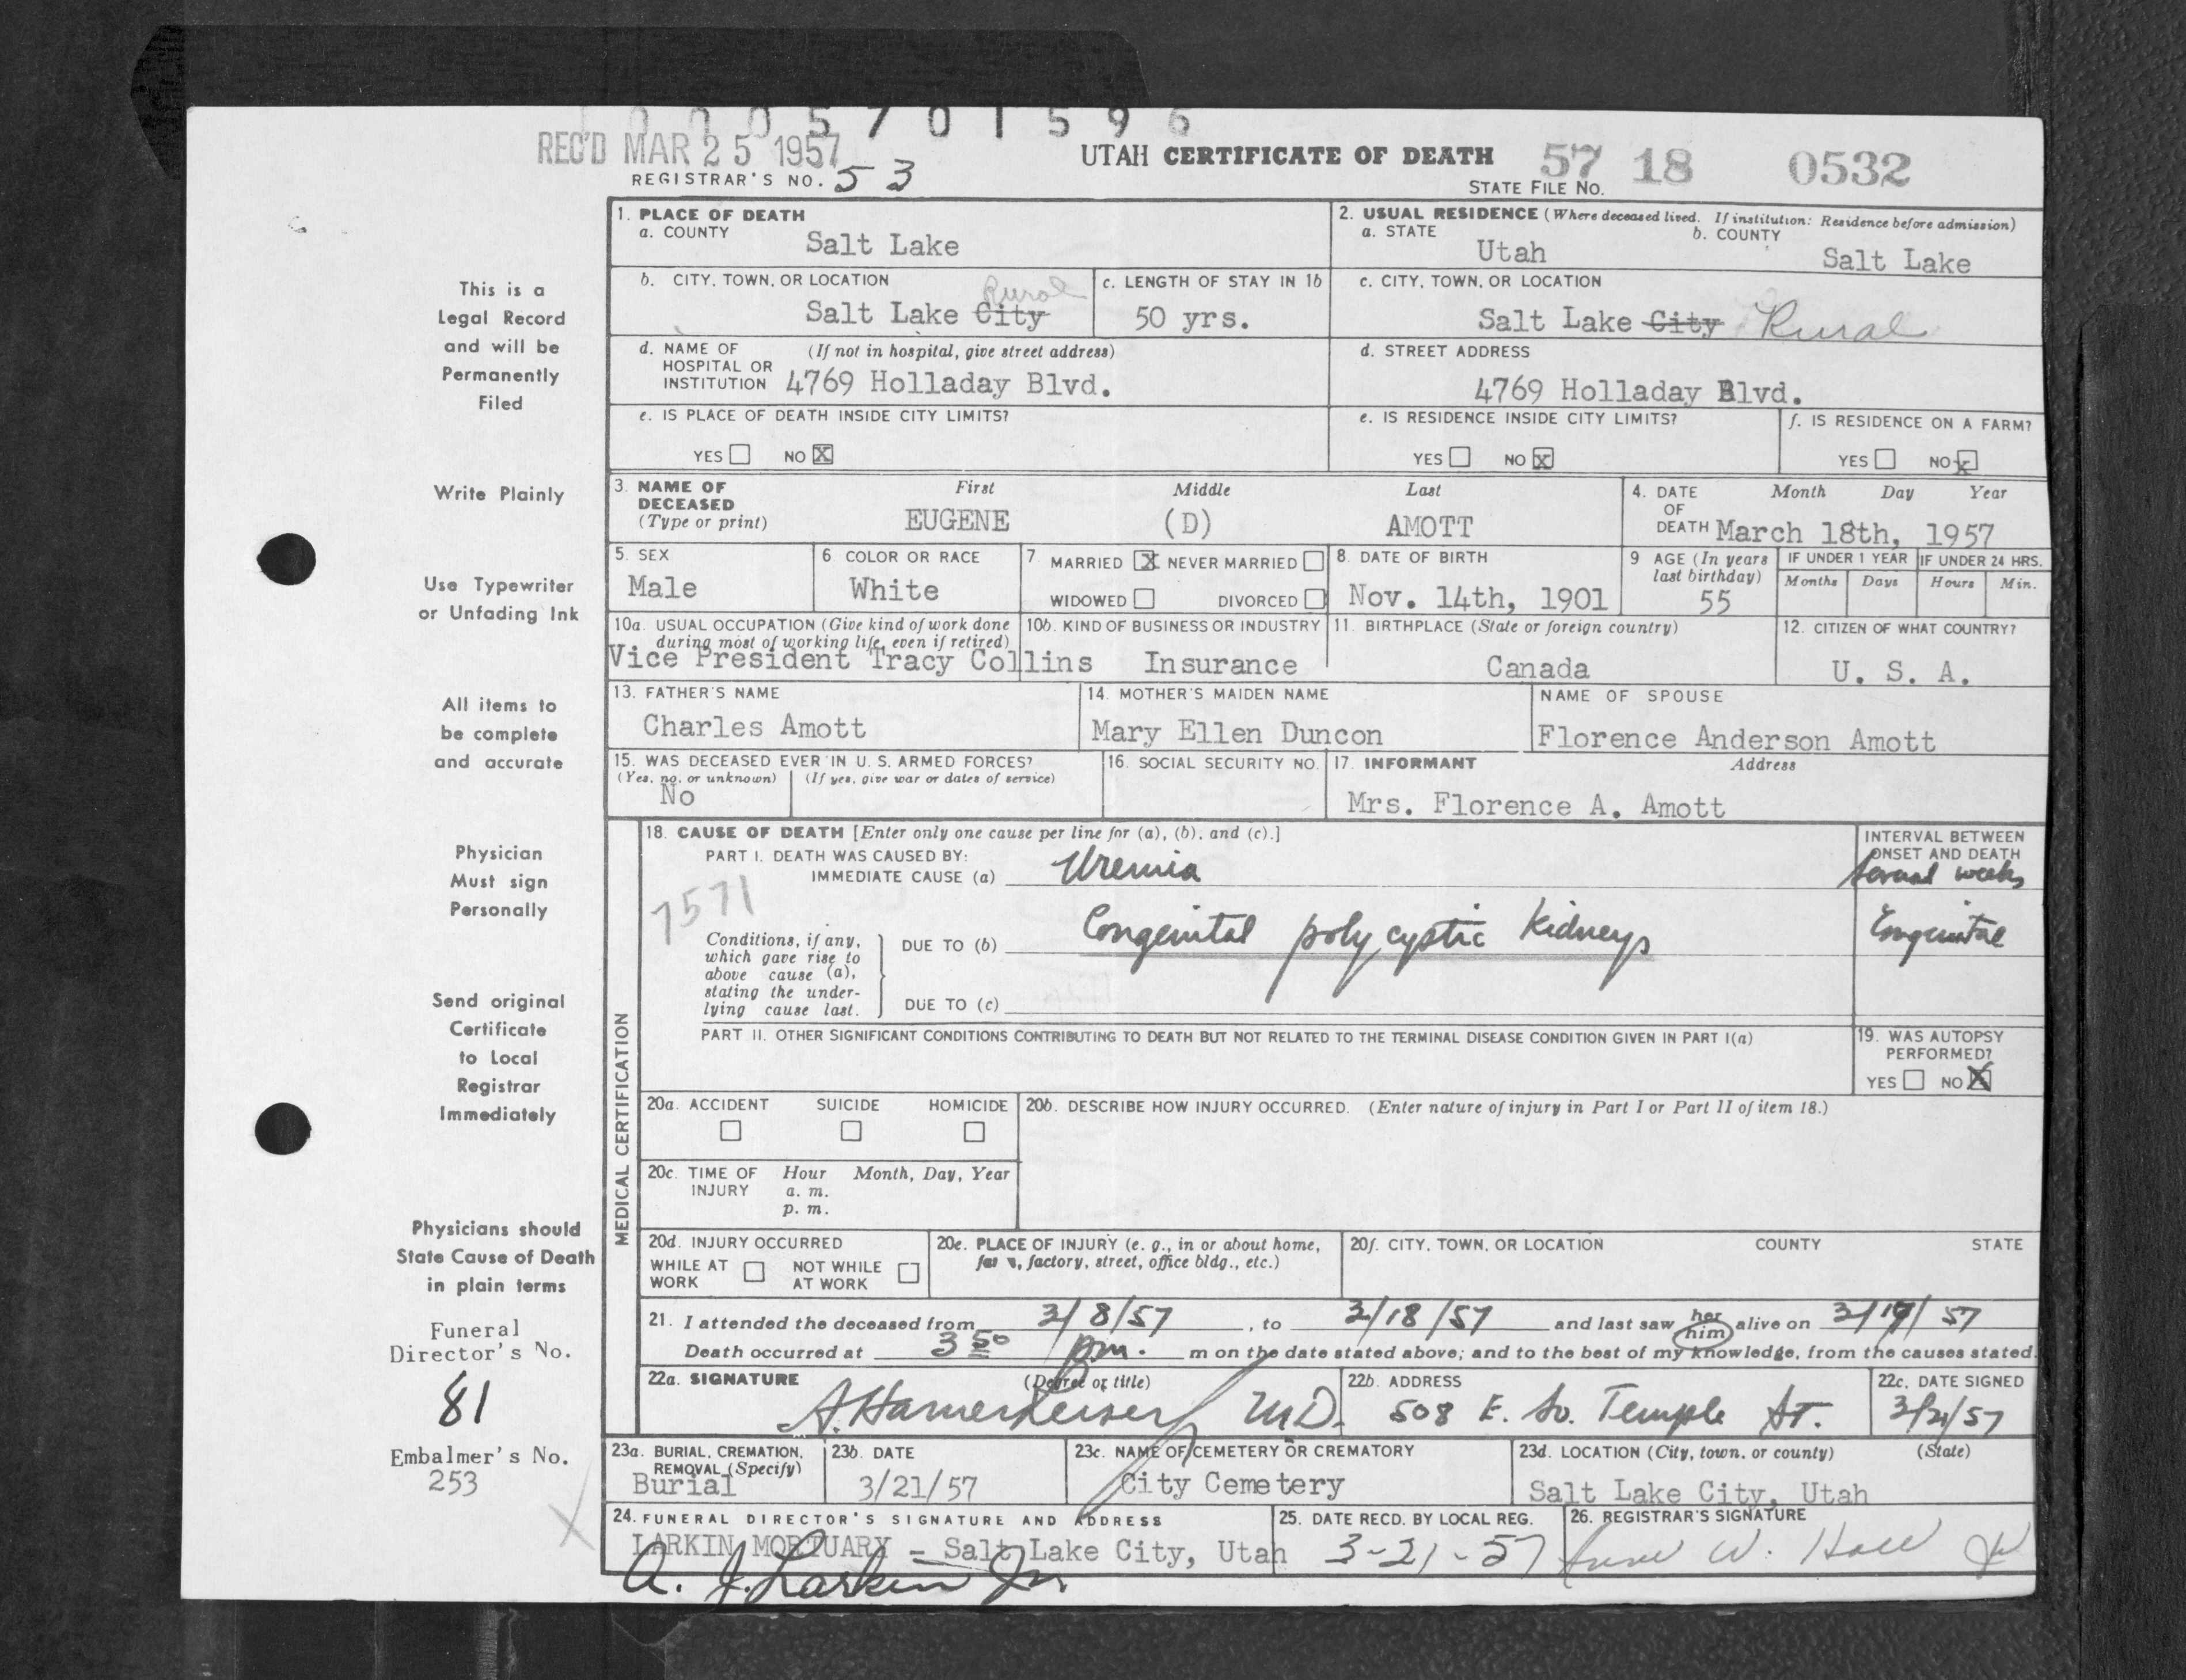 0 0 0 5 7 0 1 5 9 6
REC'D MAR 25 1957
UTAH CERTIFICATE OF DEATH 57 18 0532
REGISTRAR'S NO. 53
STATE FILE NO.
This is a
Legal Record
and will be
Permanently
Filed
Write Plainly
Use Typewriter
or Unfading Ink
All items to
be complete
and accurate
Physician
Must sign
Personally
Send original
Certificate
to Local
Registrar
Immediately
Physicians should
State Cause of Death
in plain terms
Funeral
Director's No.
81
Embalmer's No.
253
1. PLACE OF DEATH
a. COUNTY
Salt Lake
2. USUAL RESIDENCE (Where deceased lived. If institution: Residence before admission)
a. STATE b. COUNTY
Utah Salt Lake
b. CITY, TOWN, OR LOCATION
Rural
Salt Lake City
c. LENGTH OF STAY IN 1b
50 yrs.
c. CITY, TOWN, OR LOCATION
Salt Lake City Rural
d. NAME OF (If not in hospital, give street address)
HOSPITAL OR
INSTITUTION 4769 Holladay Blvd.
d. STREET ADDRESS
4769 Holladay Blvd.
e. IS PLACE OF DEATH INSIDE CITY LIMITS?
YES NO X
e. IS RESIDENCE INSIDE CITY LIMITS?
YES NO X
f. IS RESIDENCE ON A FARM?
YES NO X
3. NAME OF First Middle Last
DECEASED
(Type or print) EUGENE (D) AMOTT
4. DATE Month Day Year
OF
DEATH March 18th, 1957
5. SEX
Male
6 COLOR OR RACE
White
7 MARRIED X NEVER MARRIED
WIDOWED DIVORCED
8. DATE OF BIRTH
Nov. 14th, 1901
9 AGE (In years
last birthday)
55
IF UNDER 1 YEAR IF UNDER 24 HRS.
Months Days Hours Min.
10a. USUAL OCCUPATION (Give kind of work done
during most of working life, even if retired)
Vice President Tracy Collins
10b. KIND OF BUSINESS OR INDUSTRY
Insurance
11. BIRTHPLACE (State or foreign country)
Canada
12. CITIZEN OF WHAT COUNTRY?
U. S. A.
13. FATHER'S NAME
Charles Amott
14. MOTHER'S MAIDEN NAME
Mary Ellen Duncon
NAME OF SPOUSE
Florence Anderson Amott
15. WAS DECEASED EVER IN U. S. ARMED FORCES?
(Yes, no, or unknown) (If yes, give war or dates of service)
No
16. SOCIAL SECURITY NO.
17. INFORMANT Address
Mrs. Florence A. Amott
MEDICAL CERTIFICATION
18. CAUSE OF DEATH [Enter only one cause per line for (a), (b), and (c).]
PART I. DEATH WAS CAUSED BY:
IMMEDIATE CAUSE (a) Uremia
INTERVAL BETWEEN
ONSET AND DEATH
Several weeks
7571
Conditions, if any,
which gave rise to
above cause (a),
stating the under-
lying cause last.
DUE TO (b) Congenital polycystic Kidneys
Congenital
DUE TO (c)
PART II. OTHER SIGNIFICANT CONDITIONS CONTRIBUTING TO DEATH BUT NOT RELATED TO THE TERMINAL DISEASE CONDITION GIVEN IN PART I(a)
19. WAS AUTOPSY
PERFORMED?
YES NO X
20a. ACCIDENT SUICIDE HOMICIDE
20b. DESCRIBE HOW INJURY OCCURRED. (Enter nature of injury in Part I or Part II of item 18.)
20c. TIME OF Hour Month, Day, Year
INJURY a. m.
p. m.
20d. INJURY OCCURRED
WHILE AT NOT WHILE
WORK AT WORK
20e. PLACE OF INJURY (e. g., in or about home,
factory, street, office bldg., etc.)
20f. CITY, TOWN, OR LOCATION COUNTY STATE
21. I attended the deceased from 3/8/57, to 3/18/57 and last saw her him alive on 3/17/57
Death occurred at 3 50 pm. m on the date stated above; and to the best of my knowledge, from the causes stated.
22a. SIGNATURE (Degree or title)
M.D.
22b. ADDRESS
508 E. So. Temple St.
22c. DATE SIGNED
3/21/57
23a. BURIAL, CREMATION,
REMOVAL (Specify)
Burial
23b. DATE
3/21/57
23c. NAME OF CEMETERY OR CREMATORY
City Cemetery
23d. LOCATION (City, town, or county) (State)
Salt Lake City, Utah
24. FUNERAL DIRECTOR'S SIGNATURE AND ADDRESS
LARKIN MORTUARY - Salt Lake City, Utah
A. J. Larkin Jr.
25. DATE RECD. BY LOCAL REG.
3-21-57
26. REGISTRAR'S SIGNATURE
W. Hall